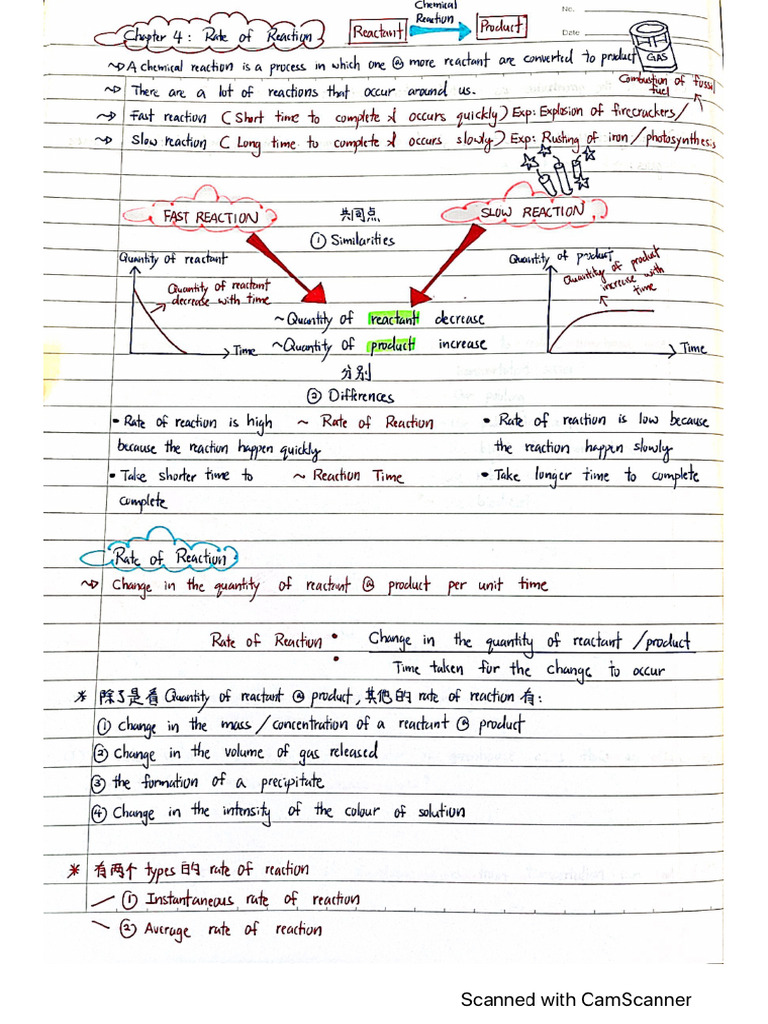 No.
Date
Chapter 4 : Rate of Reaction
Reactant
Chemical
Reaction
Product
GAS
~> A chemical reaction is a process in which one @ more reactant are converted to product
~> There are a lot of reactions that occur around us.
Combustion of fossil
fuel
~> Fast reaction ( Short time to complete & occurs quickly ) Exp: Explosion of firecrackers /
~> Slow reaction ( Long time to complete & occurs slowly ) Exp: Rusting of iron / photosynthesis
FAST REACTION
共同点
SLOW REACTION
① Similarities
Quantity of reactant
Quantity of reactant
decrease with time
Time
Quantity of product
Quantity of product
increase with
time
Time
~ Quantity of reactant decrease
~ Quantity of product increase
分别
② Differences
• Rate of reaction is high ~ Rate of Reaction • Rate of reaction is low because
because the reaction happen quickly the reaction happen slowly
• Take shorter time to ~ Reaction Time • Take longer time to complete
complete
Rate of Reaction
~> Change in the quantity of reactant @ product per unit time
Rate of Reaction : Change in the quantity of reactant / product
Time taken for the change to occur
* 除了是看 Quantity of reactant @ product, 其他的 rate of reaction 有:
① Change in the mass / concentration of a reactant @ product
② Change in the volume of gas released
③ the formation of a precipitate
④ Change in the intensity of the colour of solution
* 有两个 types 的 rate of reaction
① Instantaneous rate of reaction
② Average rate of reaction
Scanned with CamScanner